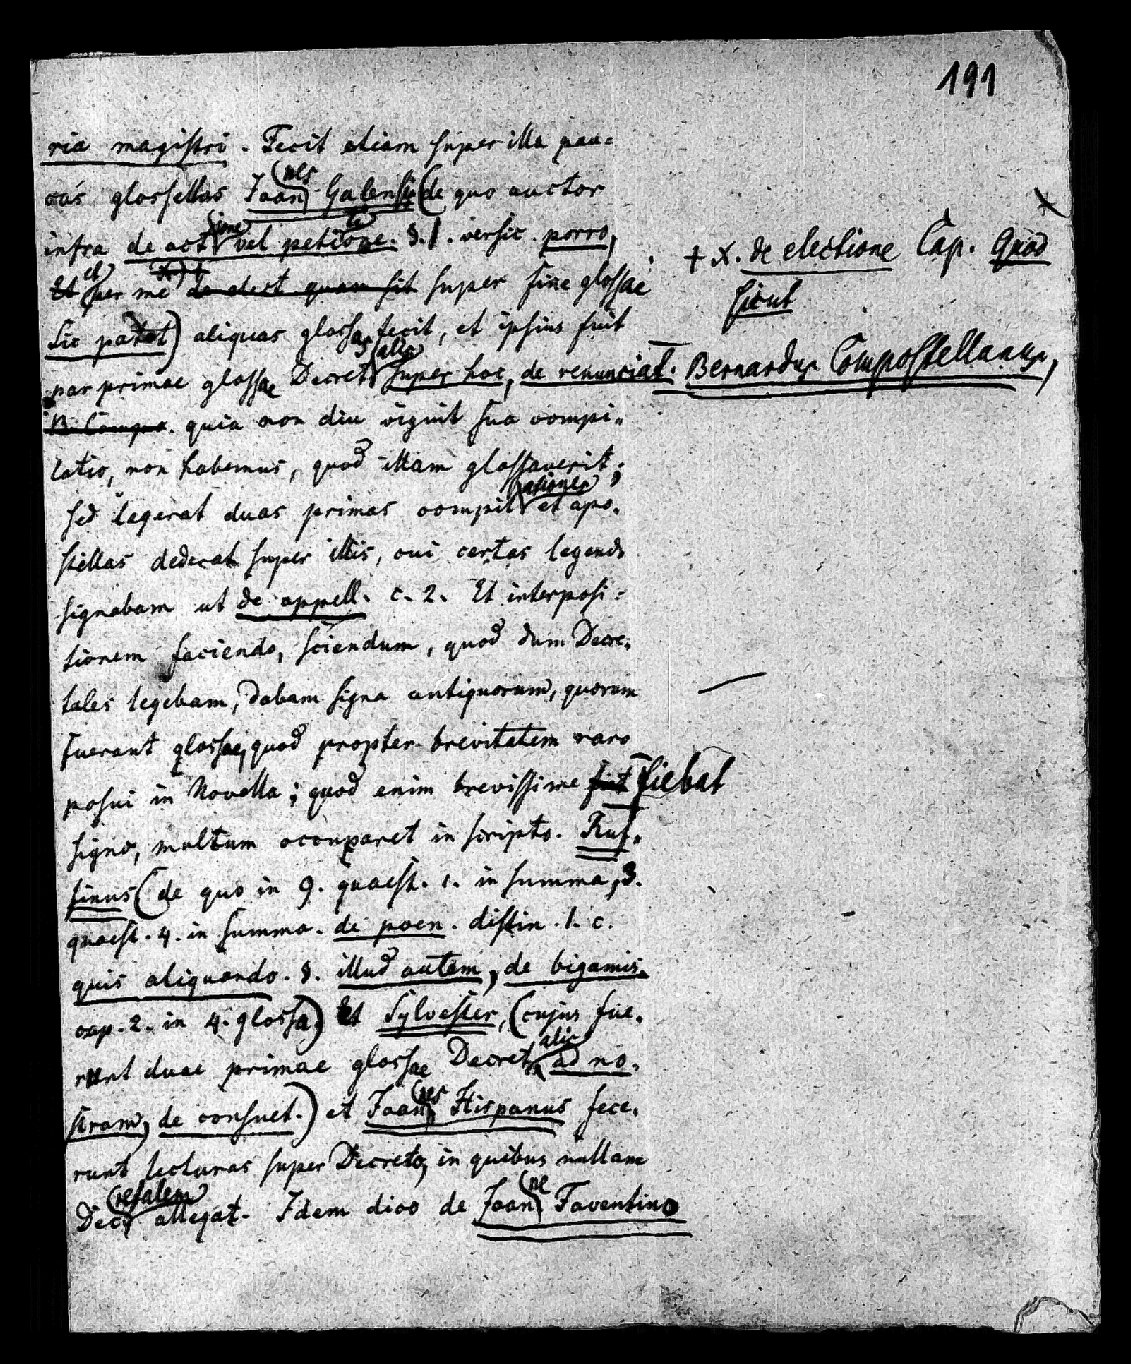 191
ria magistri. Fecit etiam super illa pau=
cas glossellas Joannes Galensis (de quo auctor
infra de actione vel petitione. §. 1. versic. porro,
et per me de elect. quam sit super fine glossae
+ X. de electione Cap. Quod
sicut
Sic patet) aliquas glossas fecit, et ipsius fuit
par primae glossae Decretalis super hoc, de renunciat. Bernardus Compostellanus,
B. Compo. quia non diu viguit sua compi=
latio, non habemus, quod illam glossaverit;
sed legerat duas primas compilationes et apo=
stillas dederat super illis, cui certas legendo
signabam ut de appell. c. 2. Et interposi=
tionem faciendo, sciendum, quod dum Decre=
tales legebam, dabam signa antiquorum, quorum
fuerant glossae, quod propter brevitatem raro
posui in Novella; quod enim brevissime fit fiebat
signo, multum occuparet in scripto. Ruf=
finus (de quo in 9. quaest. 1. in summa, 3.
quaest. 4. in summa. de poen. distin. 1. c.
quis aliquando. §. illud autem, de bigamis.
cap. 2. in 4. glossa) Et Sylvester, (cujus fue=
runt duae primae glossae Decretalis ad no=
stram, de consuet.) et Joannes Hispanus fece=
runt lecturas super Decreto, in quibus nullam
Decretalem allegat. Idem dico de Joanne Faventino